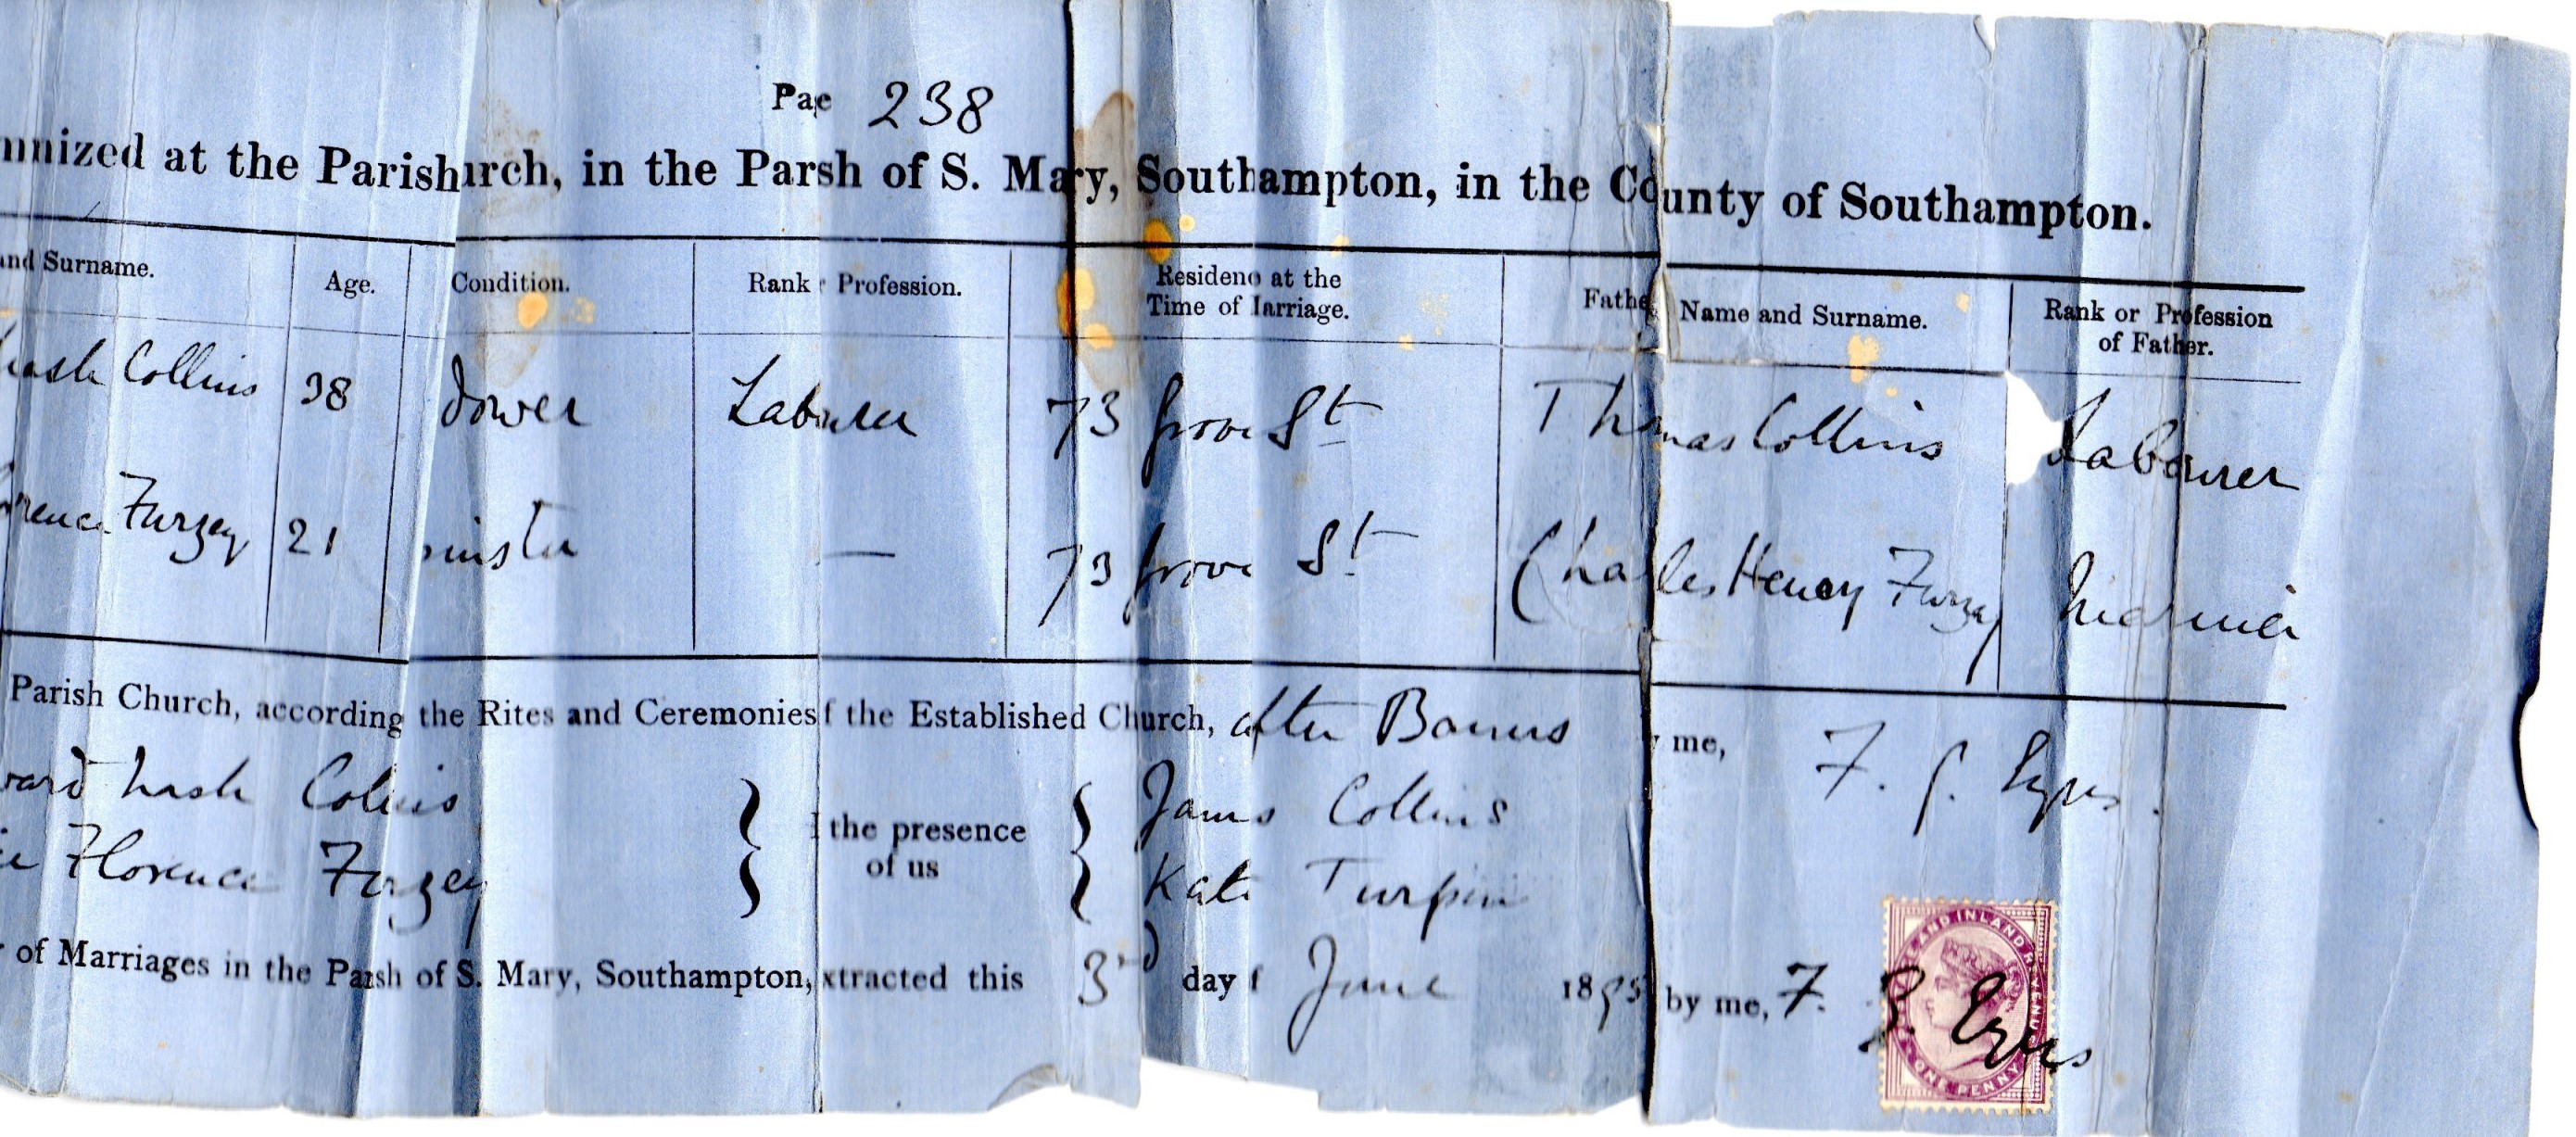 Pae 238
nnized at the Parishurch, in the Parsh of S. Mary, Southampton, in the County of Southampton.
and Surname. Age. Condition. Rank r Profession. Residenc at the Time of Iarriage. Fathe Name and Surname. Rank or Profession of Father.
Nash Collins 38 dower Labourer 73 Grove St Thomas Collins Labourer
orence Furzey 21 inster — 73 Grove St Charles Henry Furzey
Parish Church, according the Rites and Ceremonies f the Established Church, after Banns me, F.
ward Nash Collins the presence of us James Collins
Florence Furzey Kate Turpin
of Marriages in the Parsh of S. Mary, Southampton, xtracted this 3rd day f June 1895 by me, F. Eyres
AND INLAND REVENUE
ONE PENNY